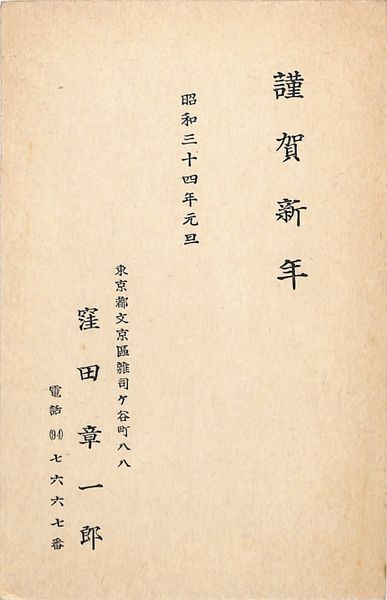 謹賀新年
昭和三十四年元旦
東京都文京區雜司ケ谷町八八
窪田章一郎
電話(94)七六六七番